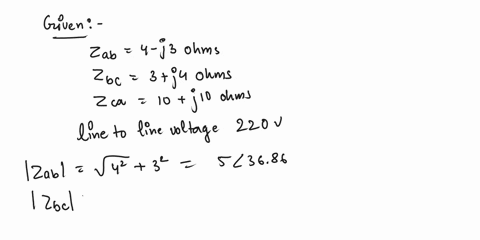 Given:-
Zab = 4-j3 ohms
Zbc = 3+j4 ohms
Zca = 10 + j10 ohms
line to line voltage 220 v
|Zab| = √4² + 3² = 5∠36.86
|Zbc|